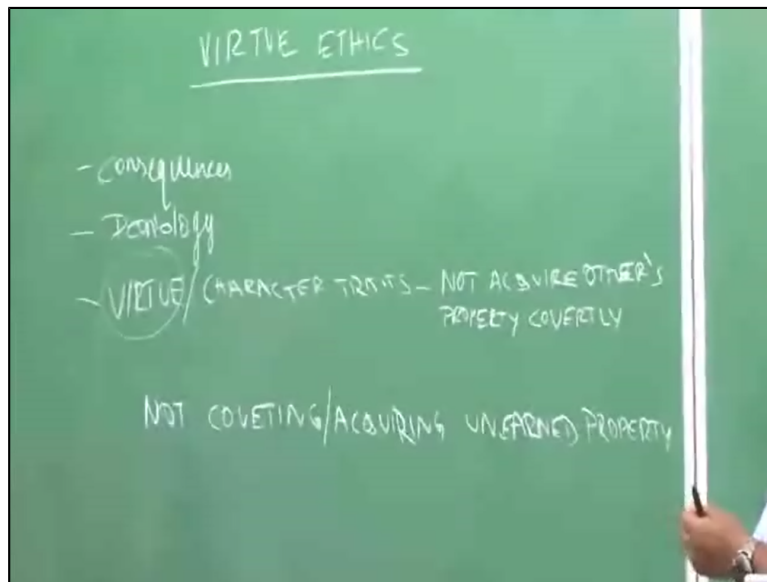 VIRTUE ETHICS
- Consequences
- Deontology
- VIRTUE/CHARACTER TRAITS - NOT ACQUIRE OTHER'S
PROPERTY COVERTLY
NOT COVETING/ACQUIRING UNEARNED PROPERTY